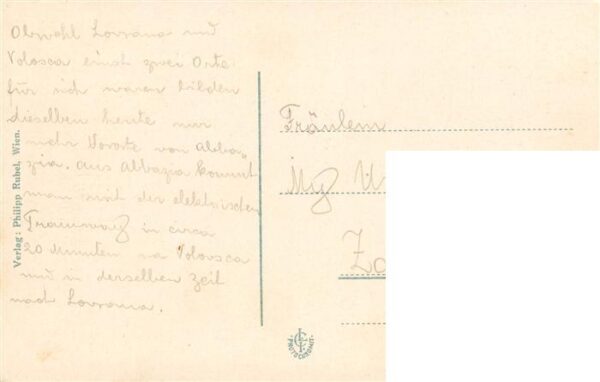 Obwohl Lovrana und
Volosca einst zwei Orte
für sich waren bilden
dieselben heute nur
mehr Vororte von Abba„
zia. Aus Abbazia kommt
man mit der elektrischen
Tramway in circa
20 Minuten na Volosca
und in derselben Zeit
nach Lovrana.
Verlag: Philipp Rubel, Wien.
Fräulein
PHOTOCHROMIT